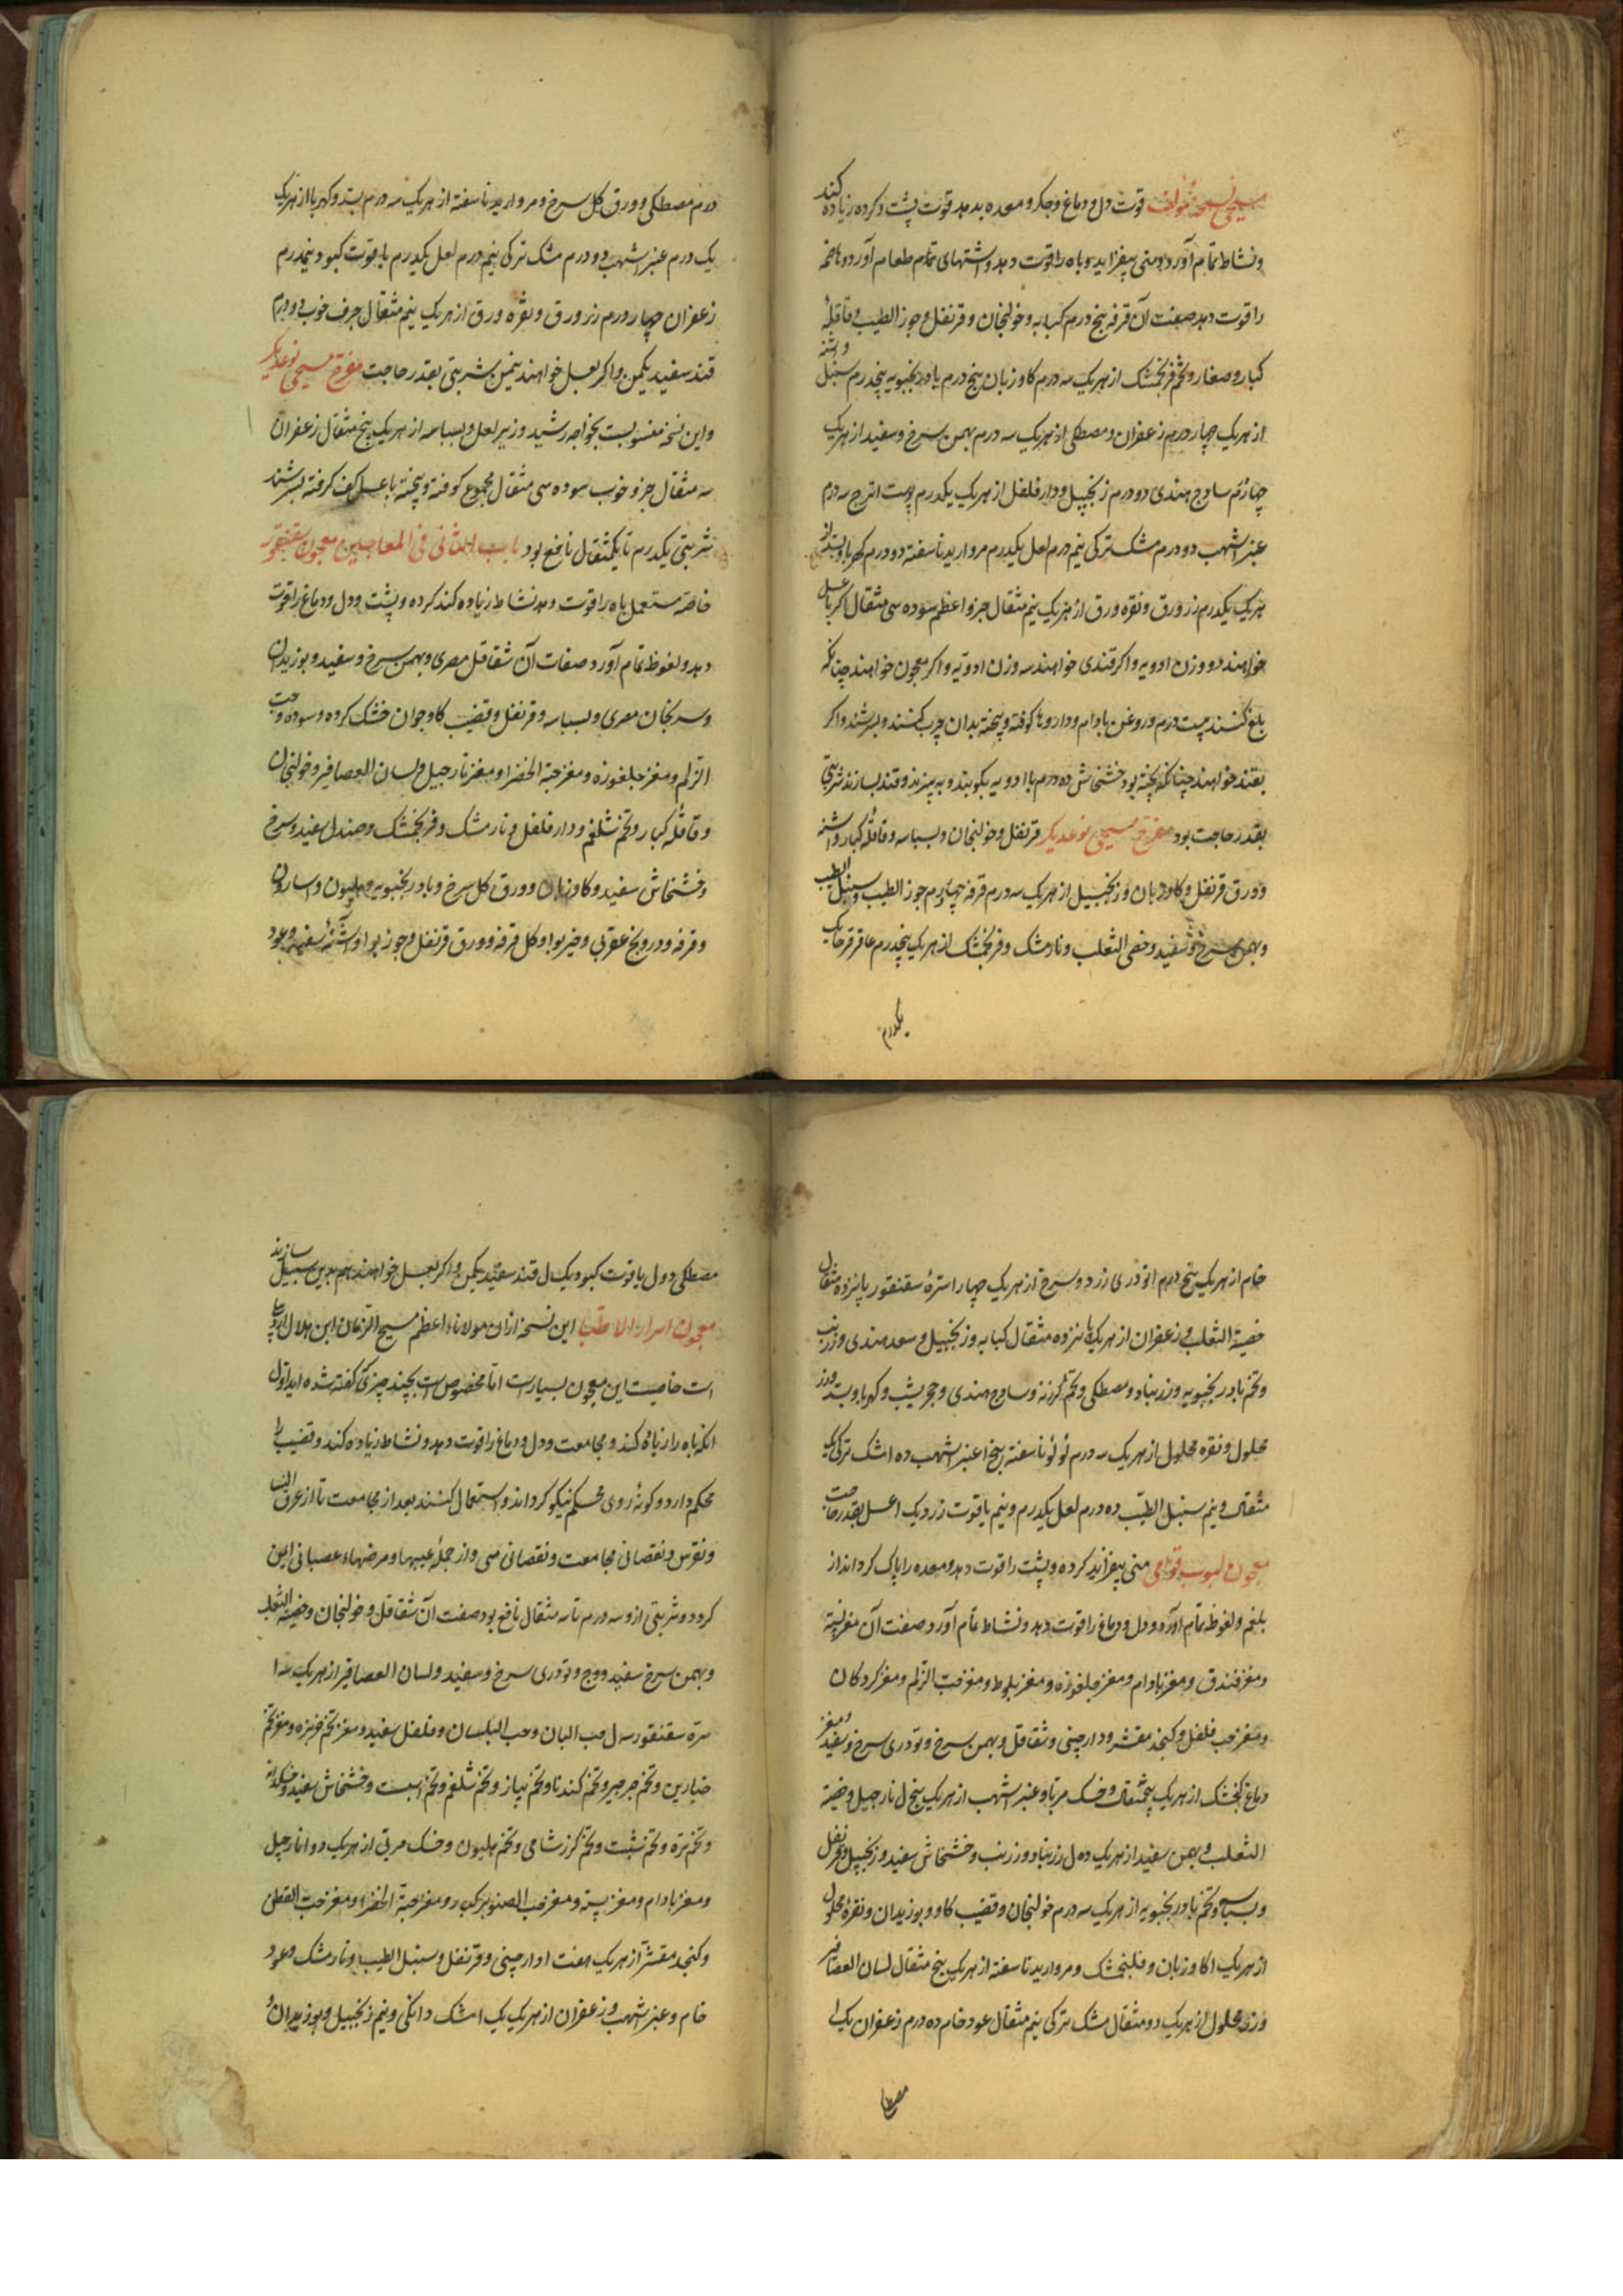 مسیحی نسخه مؤلف قوت دل و دماغ و جگر و معده بدهد قوت پشت و کرده زیاده کند
و نشاط تمام آورد و منی بیفزاید و باه را قوت دهد و اشتهای تمام طعام آورد و هاضمه
را قوت دهد صفت آن قرفه پنج درم کبابه و خولنجان و قرنفل و جوز الطیب و قاقلهٔ
کبار و صغار و تخم فرنجمشک از هریک سه درم کاوزبان پنج درم بادرنجبویه پنجدرم سنبل و اشنه
از هریک چهار درم زعفران و مصطکی از هریک سه درم بهمن سرخ و سفید از هریک
چهاردرم ساوج هندی دو درم زنجبیل و دار فلفل از هریک یکدرم پوست اترج سه درم
عنبر اشهب دو درم مشک ترکی نیم درم لعل یکدرم مروارید ناسفته دو درم کهربا و بسد از
هریک یکدرم زر ورق و نقره ورق از هریک نیم مثقال جزو اعظم سوده سی مثقال اکر با عسل
خواهند دو وزن ادویه و اکر قندی خواهند سه وزن ادویه و اکر معجون خواهند چنانکه
بلغ کنند بیست درم روغن بادام و داروها کوفته و بیخته بدان چرب کنند و بسرشند و اکر
بقند خواهند چنانکه پخته بود خشخاش ده درم با ادویه بکوبند و بپزند و قند بسازند شربتی
بقدر حاجت بود مفرح مسیحی نوعدیکر قرنفل و خولنجان و بسباسه و قاقلهٔ کبار و اشنه
و ورق قرنفل و کاوزبان و زنجبیل از هریک سه درم قرفه چهاردرم جوز الطیب و سنبل الطیب
و بهمن سرخ و سفید و خصی الثعلب و نارمشک و فرنجمشک از هریک پنجدرم عاقرقرحا یک
یکدرم
درم مصطکی و ورق کل سرخ و مروارید ناسفته از هریک سه درم بسد و کهربا از هریک
یک درم عنبر اشهب دو درم مشک ترکی نیم درم لعل یکدرم یاقوت کبود نیمدرم
زعفران چهار درم زر ورق و نقره ورق از هریک نیم مثقال جرف خوب دو درم
قند سفید یکمن و اکر بعسل خواهند نیمن شربتی بقدر حاجت مفرح مسیحی نوعدیکر
و این نسخه منسوبست بخواجه رشید وزیر لعل و بسباسه از هریک پنج مثقال زعفران
سه مثقال جزو خوب سوده سی مثقال مجموع کوفته و بیخته با عسل کف کرفته بسرشند
شربتی یکدرم تا یکمثقال نافع بود باب الثانی فی المعاجین معجون سقنقور
خاصه مستعمل باه را قوت دهد نشاط زیاده کند کرده و پشت و دل و دماغ را قوت
دهد و لغوظ تمام آورد صفات آن شقاقل مصری و بهمن سرخ و سفید و بوزیدان
و سریخان مصری و بسباسه و قرنفل و قضیب کاو جوان خشک کرده و سوده و حب
الزلم و مغز جلغوزه و مغز حبة الخضرا و مغز نارجیل و لسان العصافیر و خولنجان
و قاقلهٔ کبار و تخم شلغم و دار فلفل و نارمشک و فرنجمشک و صندل سفید و سرخ
و خشخاش سفید و کاوزبان و ورق کل سرخ و بادرنجبویه و هلیون و اسارون
و قرفه و درونج عقربی و خیربوا و کل قرفه و ورق قرنفل و جوز بوا و اشنهٔ سفید و عود
خام از هریک پنج درم اتودری زرد و سرخ از هریک چهار استرهٔ سقنقور پانزده مثقال
خصیة الثعلب و زعفران از هریک پانزده مثقال کبابه و زنجبیل و سعد هندی و زرنب
و تخم بادرنجبویه و زرنباد و مصطکی و تخم کرزنه و ساوج هندی و حجر یشب و کهربا و بسد و زر
محلول و نقره محلول از هریک سه درم لؤلؤ ناسفته پنج ا عنبر اشهب ده ا مشک ترکی یک
مثقال و نیم سنبل الطیب ده درم لعل یکدرم و نیم یاقوت زرد یک ا عسل بقدر حاجت
معجون لبوب قوامی منی بیفزاید کرده و پشت را قوت دهد و معده را پاک کرداند از
بلغم و لغوظ تمام آورد و دل و دماغ را قوت دهد و نشاط تمام آورد صفت آن مغز پسته
و مغز فندق و مغز بادام و مغز جلغوزه و مغز بلوط و مغز حب الزلم و مغز کردکان
و مغز حب فلفل و کنجد مقشر و دارچینی و شقاقل و بهمن سرخ و تودری سرخ و سفید و مغز
دماغ کنجشک از هریک پنجمثقال و خسک مربا و عنبر اشهب از هریک پنج ل نارجیل و خصیة
الثعلب و بهمن سفید از هریک ده ل زرنباد و زرنب و خشخاش سفید و زنجبیل و قرنفل
و بسباسه و تخم بادرنجبویه از هریک سه درم خولنجان و قضیب کاو و بوزیدان و نقره محلول
از هریک ا کاوزبان و فلنجمشک و مروارید ناسفته از هریک پنج مثقال لسان العصافیر
و زر محلول از هریک دو مثقال مشک ترکی نیم مثقال عود خام ده درم زعفران یک ل
مصطکی
مصطکی دو ل یاقوت کبود یک ل قند سفید یکمن و اکر بعسل خواهند هم بدین سبیل سازند
معجون اسرار الاطبا این نسخه ازان مولاناء اعظم مسیح الزمان ابن هلال
است خاصیت این معجون بسیارست اما مخصوص است بچند چیزی که گفته شده اید اول
انکه باه را زیاده کند و مجامعت و دل و دماغ را قوت دهد و نشاط زیاده کند و قضیب را
محکم دارد و کونهٔ روی محکم نیکو کرداند و استعمال کنند بعد از مجامعت تا از عرق النسا
و نقرس و نقصانی مجامعت و نقصانی منی و از جملهٔ عیبها و مرضهاء عصبانی ایمن
کردد و شربتی ازو سه درم تا سه مثقال نافع بود صفت آن شقاقل و خولنجان و خصیة الثعلب
و بهمن سرخ سفید و وج و تودری سرخ و سفید و لسان العصافیر از هریک سه ا
سرّهٔ سقنقور سه ل حب البان و حب البلسان و فلفل سفید و مغز تخم خربزه و مغز تخم
خیارین و تخم جرجیر و تخم کندنا و تخم پیاز و تخم شلغم و تخم اسبست و خشخاش سفید و خسکدانه
و تخم تره و تخم شبت و تخم کرز شامی و تخم هلیون و خسک مربی از هریک دو ا نارجیل
و مغز بادام و مغز پسته و مغز حب الصنوبر کبار و مغز حبة الخضراء و مغز حب القطن
و کنجد مقشر از هریک هفت ا دارچینی و قرنفل و سنبل الطیب و نارمشک و عود
خام و عنبر اشهب و زعفران از هریک یک ا مشک دانکی و نیم زنجبیل و بوزیدان و